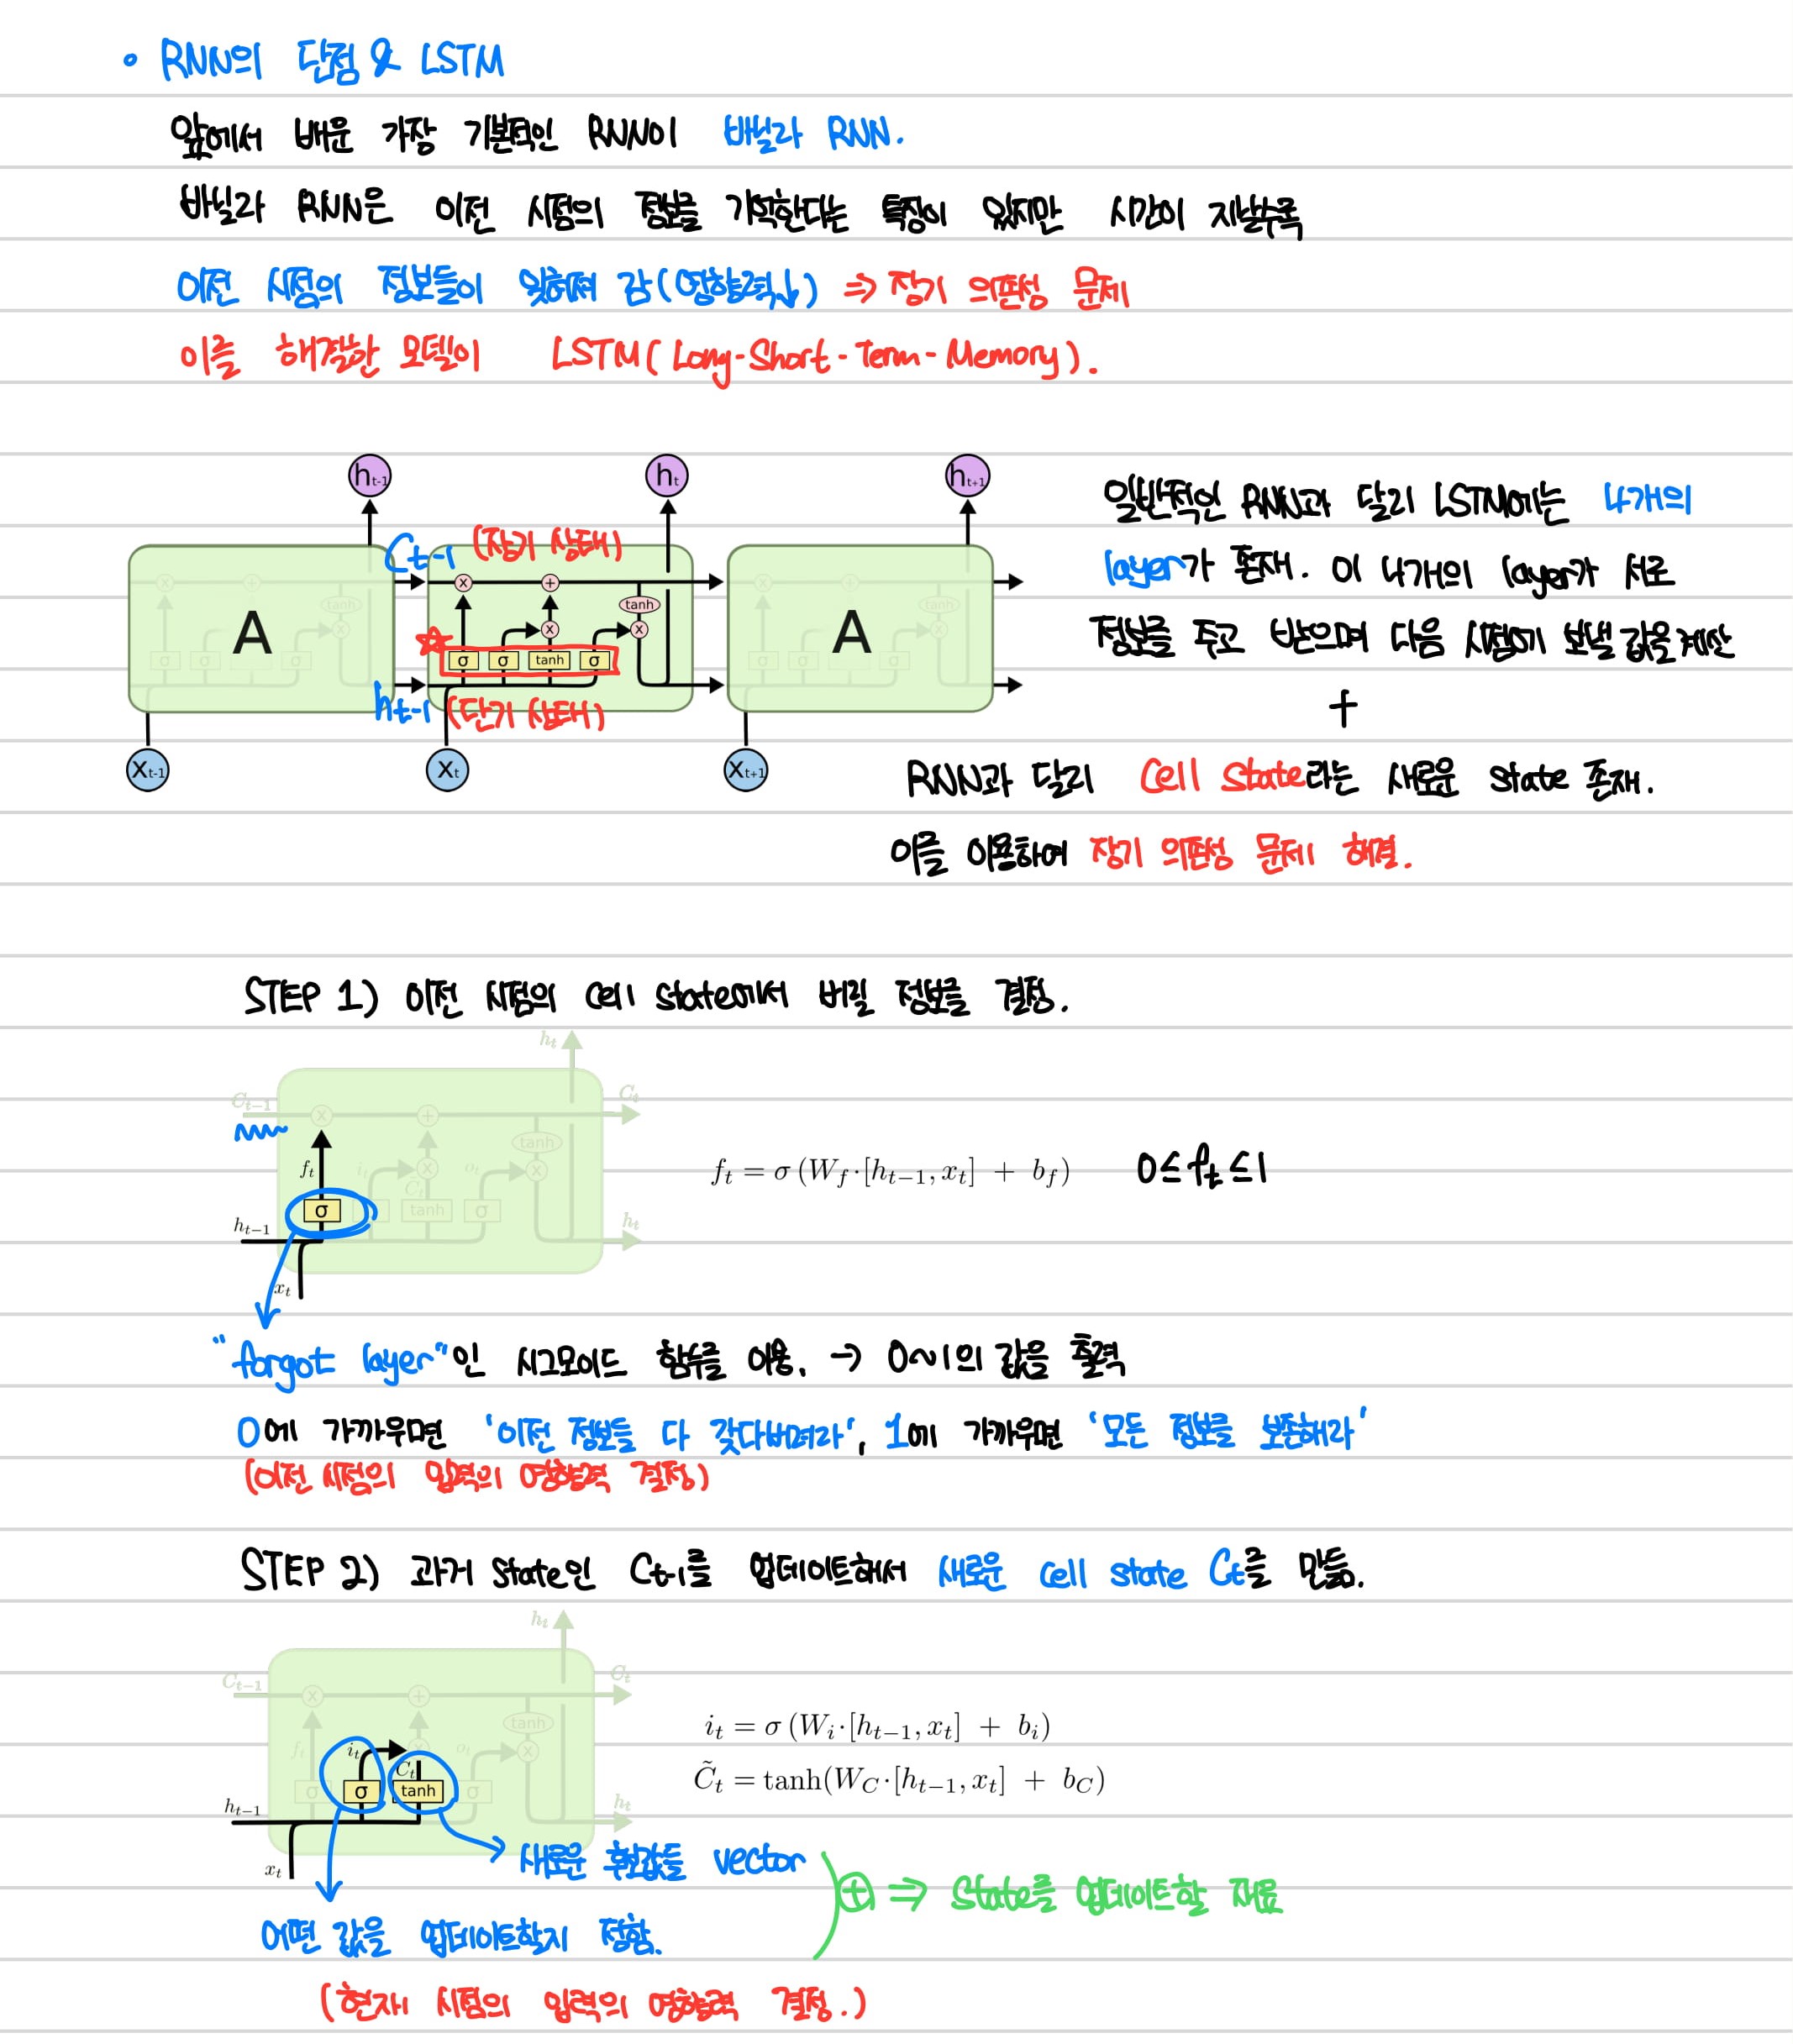 • RNN의 단점 & LSTM
앞에서 배운 가장 기본적인 RNN이 바닐라 RNN.
바닐라 RNN은 이전 시점의 정보를 기억한다는 특징이 있지만 시간이 지날수록
이전 시점의 정보들이 잊혀져 감(영향력↓) ⇒ 장기 의존성 문제
이를 해결한 모델이 LSTM(Long-Short-Term-Memory).
h_{t-1} h_t h_{t+1}
C_{t-1} (장기 상태)
A
x + tanh x x
σ σ tanh σ
A
h_{t-1} (단기 상태)
X_{t-1} X_t X_{t+1}
일반적인 RNN과 달리 LSTM에는 4개의
layer가 존재. 이 4개의 layer가 서로
정보를 주고 받으며 다음 시점에 보낼 값을 계산
+
RNN과 달리 Cell State라는 새로운 state 존재.
이를 이용하여 장기 의존성 문제 해결.
STEP 1) 이전 시점의 cell state에서 버릴 정보를 결정.
h_t
C_{t-1} x + C_t
tanh
f_t i_t x o_t x
C̃_t
σ σ tanh σ
h_{t-1} h_t
x_t
f_t = σ (W_f·[h_{t-1}, x_t] + b_f) 0≤f_t≤1
"forgot layer"인 시그모이드 함수를 이용. → 0~1의 값을 출력
0에 가까우면 '이전 정보들 다 갖다버려라', 1에 가까우면 '모든 정보를 보존해라'
(이전 시점의 입력의 영향력 결정)
STEP 2) 과거 state인 C_{t-1}를 업데이트해서 새로운 cell state C_t를 만듦.
h_t
C_{t-1} x + C_t
tanh
f_t i_t o_t x
C̃_t
σ σ tanh σ
h_{t-1} h_t
x_t
i_t = σ (W_i·[h_{t-1}, x_t] + b_i)
C̃_t = tanh(W_C·[h_{t-1}, x_t] + b_C)
새로운 후보값들 vector
⊕ ⇒ State를 업데이트할 재료
어떤 값을 업데이트할지 정함.
(현재 시점의 입력의 영향력 결정.)